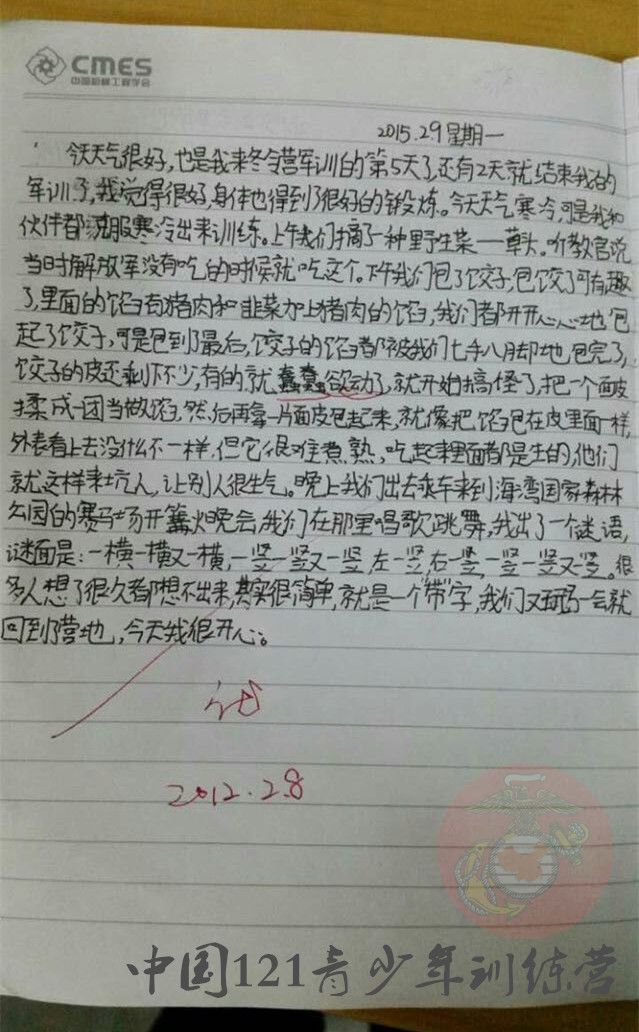 CMES
中国机械工程学会
2015.2.9 星期一
今天天气很好,也是我来冬令营军训的第5天了,还有2天就结束我的
军训了,我觉得很好,身体也得到了很好的锻炼。今天天气寒冷,可是我和
伙伴都克服寒冷出来训练。上午我们摘了一种野生菜——草头。听教官说
当时解放军没有吃的时候就吃这个。下午我们包了饺子,包饺子可有趣
了,里面的馅有猪肉和韭菜加上猪肉的馅,我们都开开心心地包
起了饺子,可是包到了最后,饺子的馅都被我们七手八脚地包完了,
饺子的皮还剩下不少,有的就蠢蠢欲动了,就开始搞怪了,把一个面皮
揉成一团当做馅,然后再拿一片面皮包起来,就像把馅包在皮里面一样,
外表看上去没什么不一样,但它很难煮熟,吃起来里面都是生的,他们
就这样来坑人,让别人很生气。晚上我们出去乘车来到海湾国家森林
公园的赛马场开篝火晚会,我们在那里唱歌跳舞,我出了一个谜语,
谜面是:一横一横又一横,一竖一竖又一竖,左一竖,右一竖,一竖一竖又一竖。很
多人想了很久都想不出来,其实很简单,就是一个“带”字,我们又玩了一会就
回到了营地,今天我很开心。
2012.2.8
中国121青少年训练营